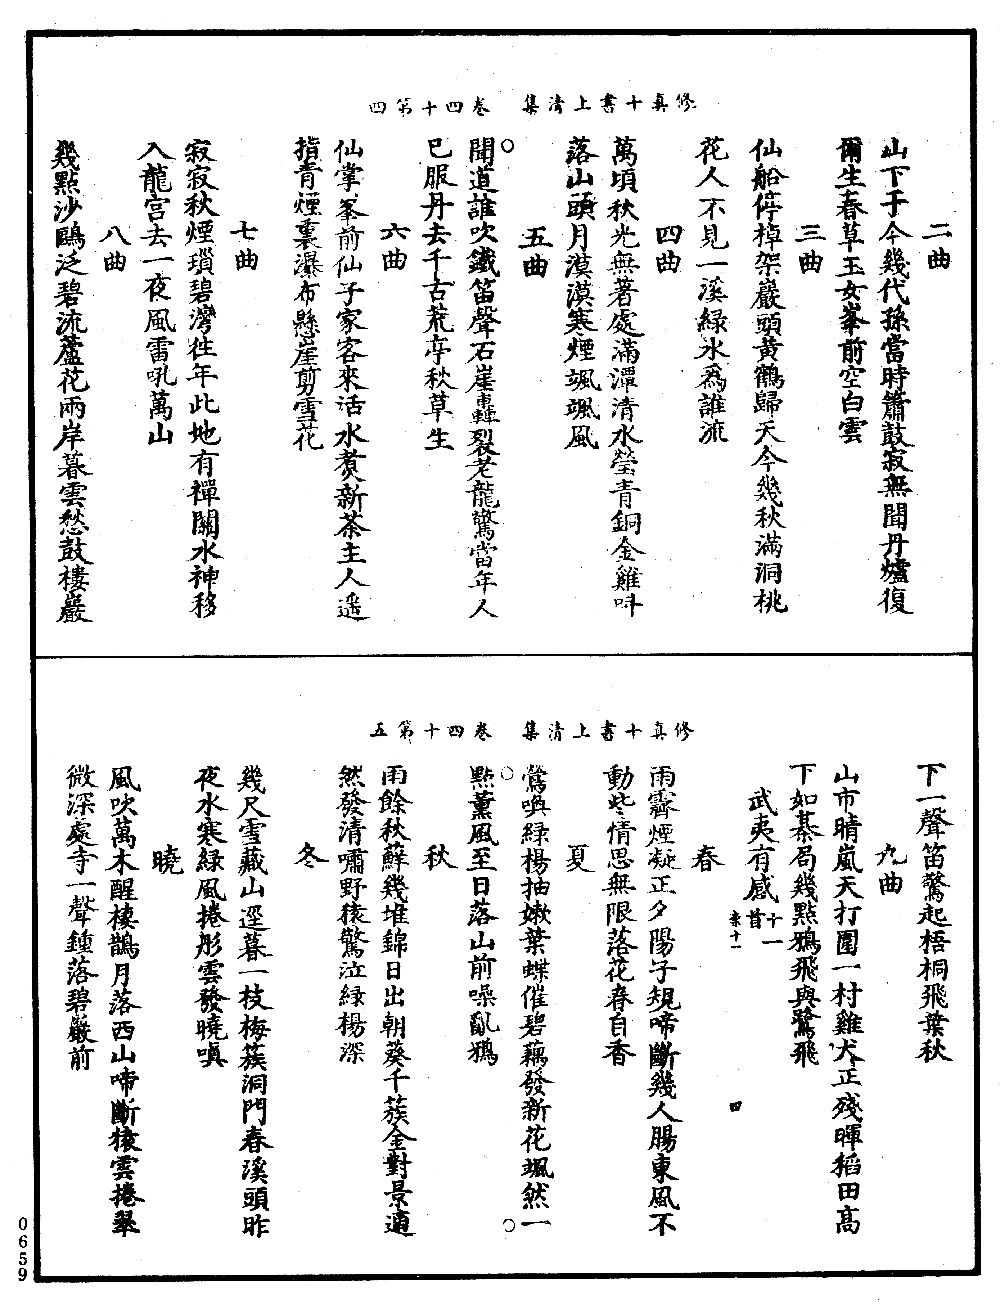 修真十書上清集　卷四十第四
二曲
山下于今幾代孫當時簫鼓寂無聞丹爐復
爾生春草玉女峯前空白雲
三曲
仙船停棹架巖頭黄鶴歸天今幾秋滿洞桃
花人不見一溪綠水為誰流
四曲
萬頃秋光無著處滿潭清水瑩青銅金雞叫
落山頭月漠漠寒煙颯颯風
五曲
聞道誰吹鐵笛聲石崖轟裂老龍驚當年人
已服丹去千古荒亭秋草生
六曲
仙掌峯前仙子家客來活水煑新茶主人遥
指青煙裏瀑布懸崖剪雪花
七曲
寂寂秋煙瑣碧灣徃年此地有禪關水神移
入龍宫去一夜風雷吼萬山
八曲
幾點沙鷗泛碧流蘆花兩岸暮雲愁鼓樓巖
修真十書上清集　卷四十第五
下一聲笛驚起梧桐飛葉秋
九曲
山市晴嵐天打圍一村雞犬正殘暉稻田高
下如棊局幾點鴉飛與鷺飛
武夷有感十一首
柰十一　四
春
雨霽煙凝正夕陽子規啼斷幾人腸東風不
動些情思無限落花春自香
夏
鶯喚綠楊抽嫩葉蝶催碧藕發新花颯然一
點薰風至日落山前噪亂鴉
秋
雨餘秋蘚幾堆錦日出朝葵千蔟金對景適
然發清嘯野猿驚泣綠楊深
冬
幾尺雪藏山逕暮一枝梅蔟洞門春溪頭昨
夜水寒綠風捲彤雲發曉嗔
曉
風吹萬木醒棲鵲月落西山啼斷猿雲捲翠
微深處寺一聲鍾落碧巖前
0659